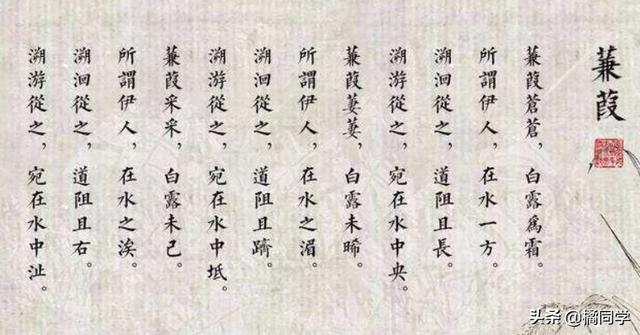 蒹葭
蒹葭蒼蒼，白露爲霜。
所謂伊人，在水一方。
溯洄從之，道阻且長。
溯游從之，宛在水中央。
蒹葭萋萋，白露未晞。
所謂伊人，在水之湄。
溯洄從之，道阻且躋。
溯游從之，宛在水中坻。
蒹葭采采，白露未已。
所謂伊人，在水之涘。
溯洄從之，道阻且右。
溯游從之，宛在水中沚。
头条 @橘同学